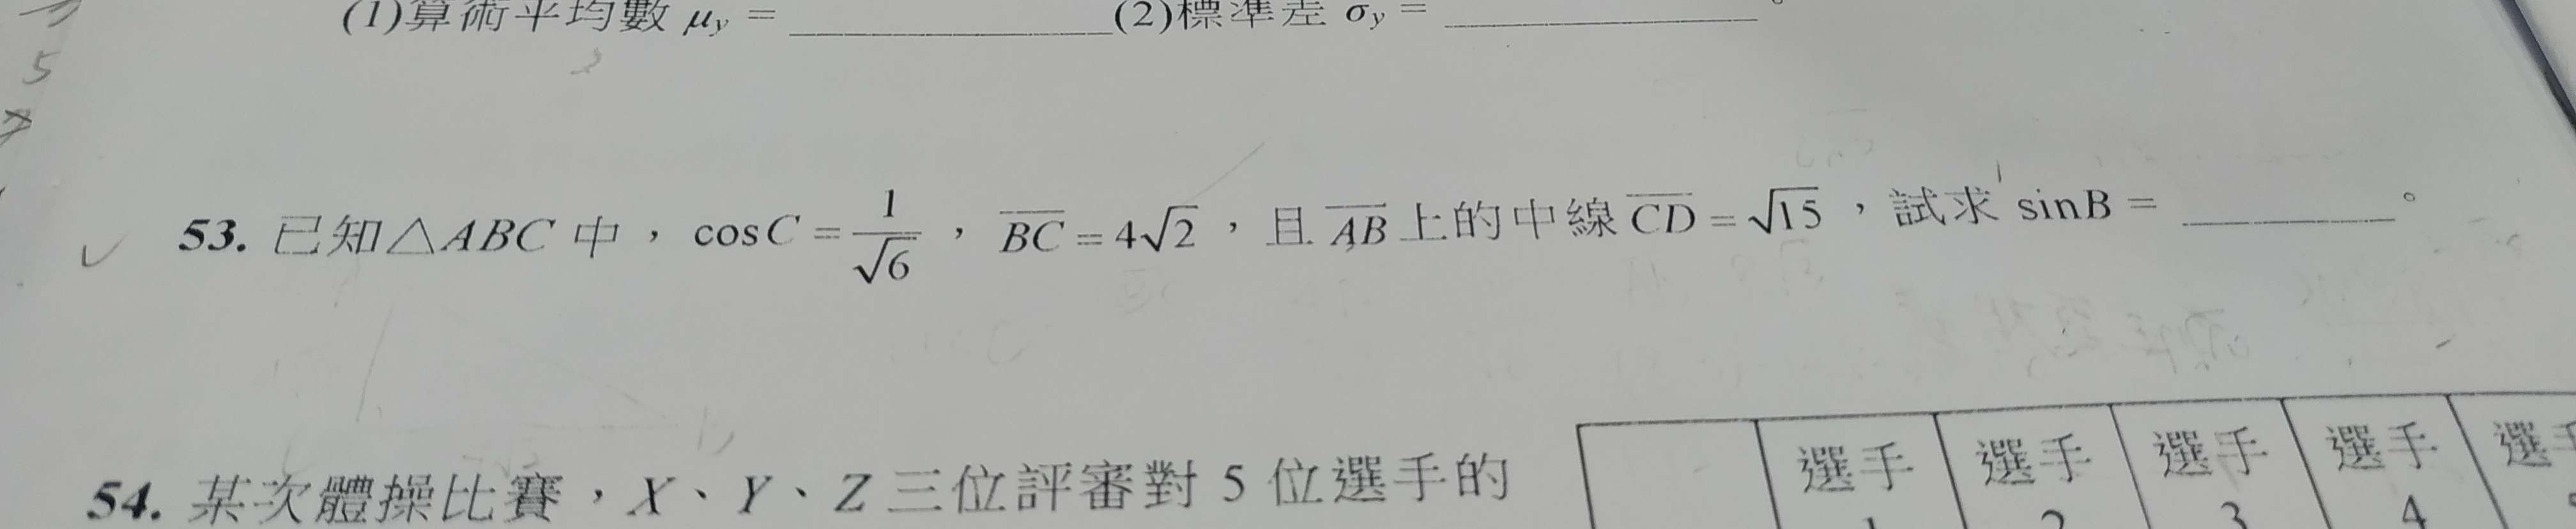 (1)算術平均數 μy = ________ (2)標準差 σy = ________。
5
53. 已知△ABC 中，cosC = 1/√6，BC = 4√2，且 AB 上的中線 CD = √15，試求 sinB = ________。
54. 某次體操比賽，X、Y、Z 三位評審對 5 位選手的
選手 選手 選手 選手 選手
1 2 3 4